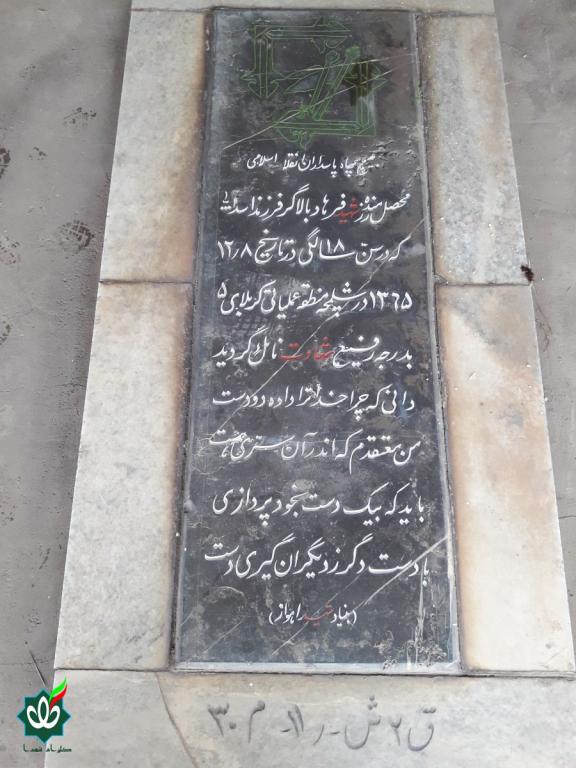 بسیج سپاه پاسداران انقلاب اسلامی
محصل رزمنده شهید فرهاد بالاگر فرزند اسد
که در سن ۱۸ سالگی در تاریخ ۱۲٫۸
۱۳۶۵ در شلمچه منطقه عملیاتی کربلای ۵
بدرجه رفیع شهادت نائل گردید
دانی که چرا خدا ترا داده دو دست
من معتقدم که اندر آن سری هست
باید که بیک دست بخود پردازی
با دست دگر ز دیگران گیری دست
(بنیاد شهید اهواز)
ق ۲ ش - ر ۱۱ - م ۳۰
گلزار شهدا